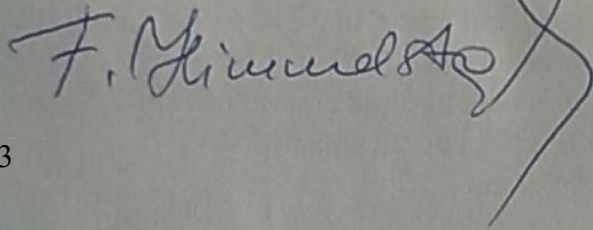 F. Himmelstoß
3